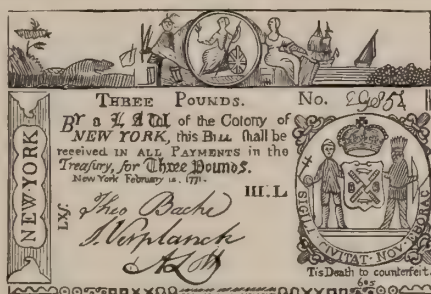 THREE POUNDS. No. 29851
By a LAW of the Colony of
NEW YORK, this BILL shall be
received IN ALL PAYMENTS in the
Treasury, for Three Pounds.
New York February 16, 1771.
III.L
NEW-YORK
LXſ.
Theo Bache
S. Verplanck
A Lott
SIGILL CIVITAT· NOV· EBORAC
Tis Death to counterfeit.
60s